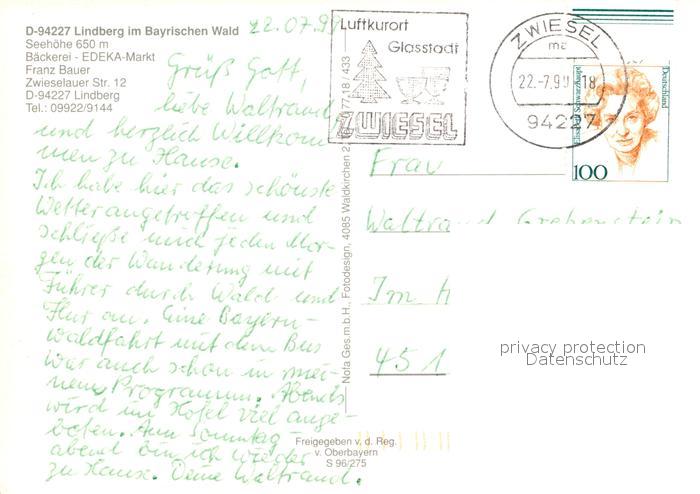 D-94227 Lindberg im Bayrischen Wald
Seehöhe 650 m
Bäckerei - EDEKA-Markt
Franz Bauer
Zwieselauer Str. 12
D-94227 Lindberg
Tel.: 09922/9144
22.07.99
Grüß Gott,
liebe Waltraud
und herzlich Willkom
men zu Hause.
Ich habe hier das schönste
Wetter angetroffen und
schließe mich jeden Mor-
gen der Wanderung mit
Führer durch Wald und
Flur an. Eine Bayern-
waldfahrt mit dem Bus
war auch schon in mei-
nem Programm. Abends
wird im Hotel viel ange-
boten. Am Sonntag-
abend bin ich wieder
zu Hause. Deine Waltraud.
Nota Ges.m.b.H., Fotodesign, 4085 Waldkirchen 77,18 / 433
Freigegeben v. d. Reg.
v. Oberbayern
S 96/275
Luftkurort
Glasstadt
ZWIESEL
ZWIESEL
ma
22.-7.99 18
94227
Deutschland
100
Frau
Waltraud
Im
451
privacy protection
Datenschutz